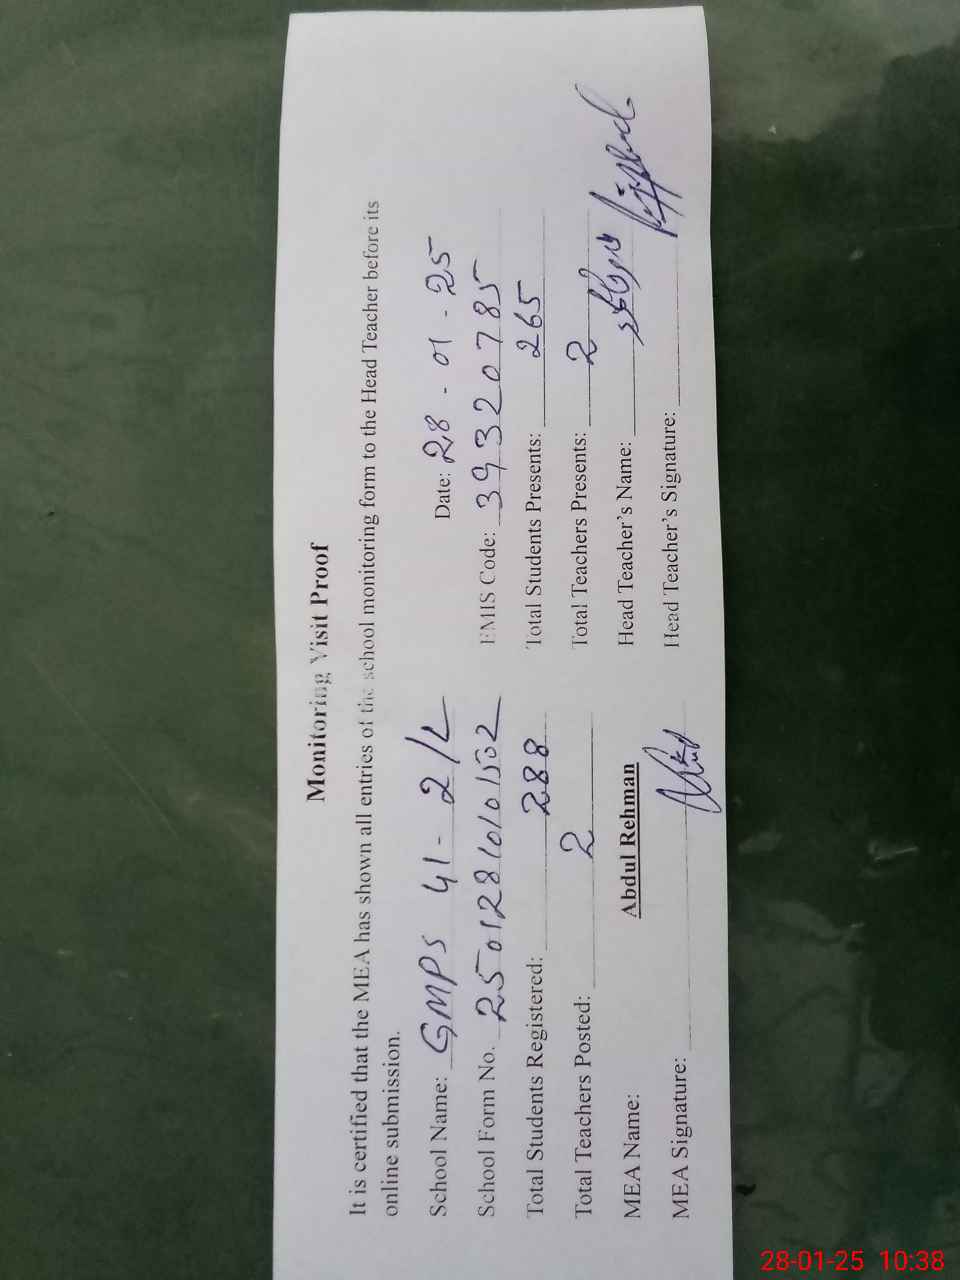 Monitoring Visit Proof
It is certified that the MEA has shown all entries of the school monitoring form to the Head Teacher before its
online submission.
School Name: GMPS 41-2/L Date: 28-01-25
School Form No. 25012810101502 EMIS Code: 39320785
Total Students Registered: 288 Total Students Presents: 265
Total Teachers Posted: 2 Total Teachers Presents: 2
MEA Name: Abdul Rehman Head Teacher's Name:
MEA Signature: Head Teacher's Signature:
28-01-25 10:38